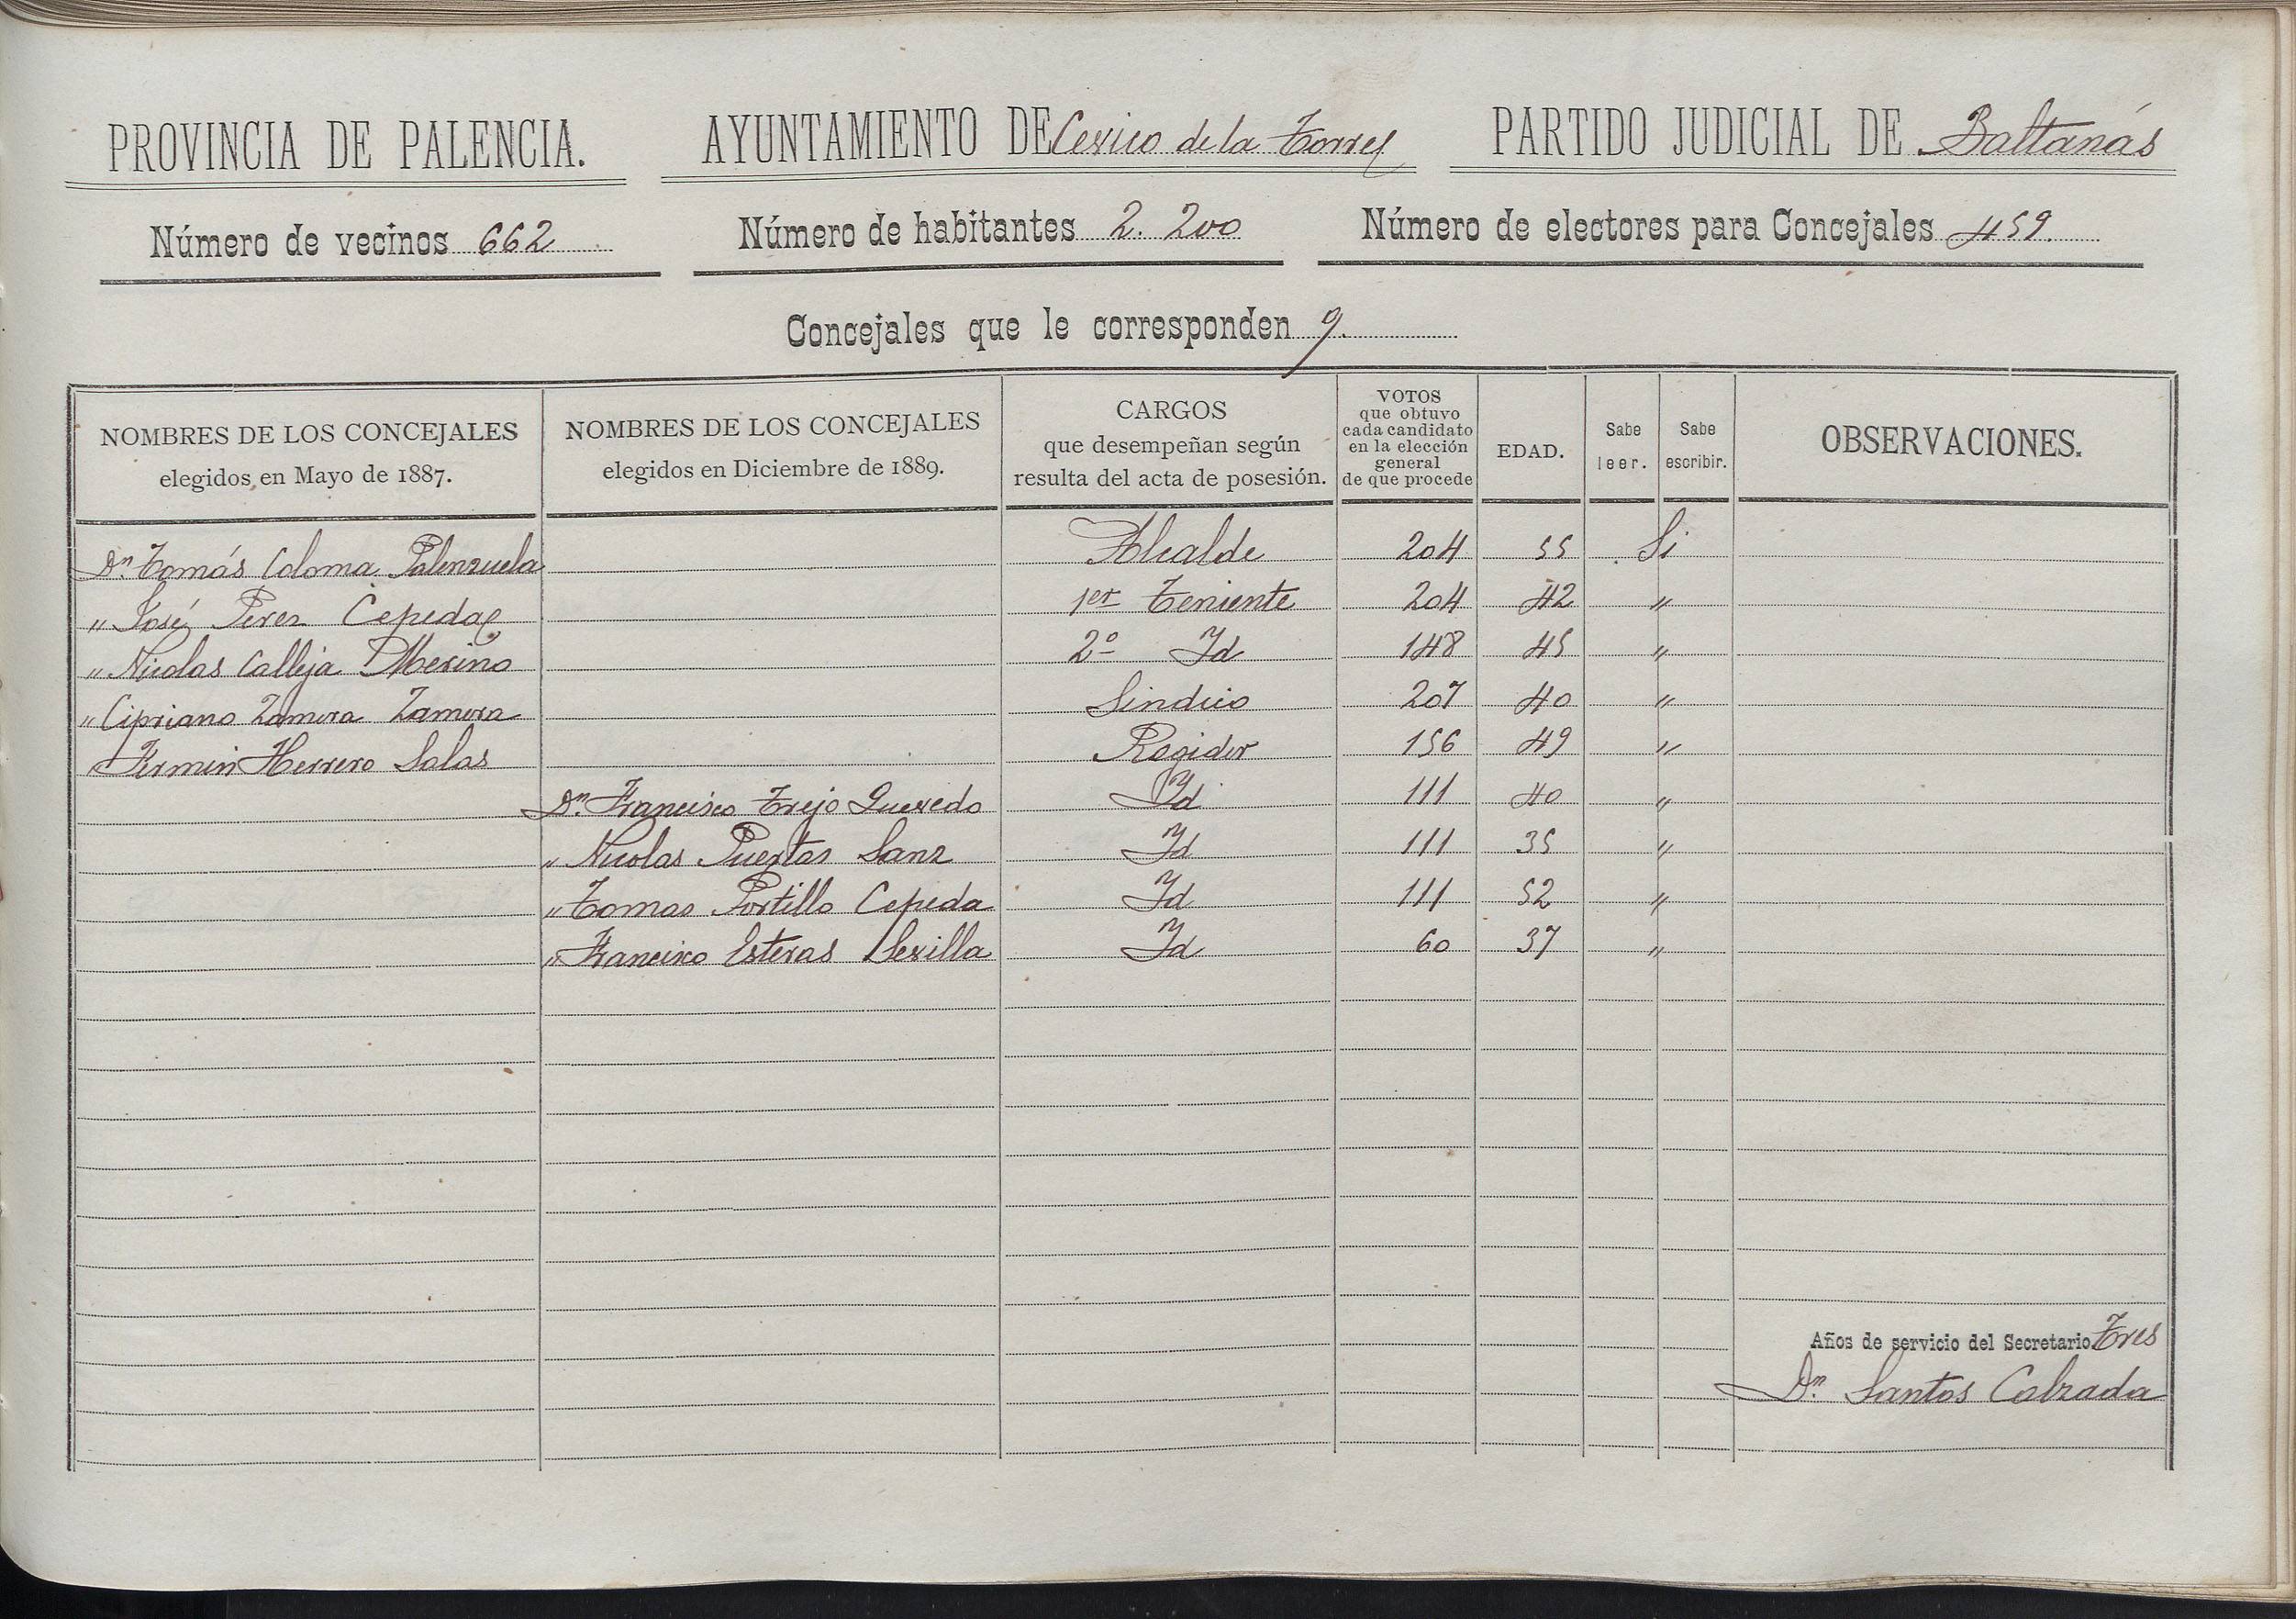 PROVINCIA DE PALENCIA. AYUNTAMIENTO DE Cevico de la Torre PARTIDO JUDICIAL DE Baltanás
Número de vecinos 662 Número de habitantes 2.200 Número de electores para Concejales 459.
Concejales que le corresponden 9.
NOMBRES DE LOS CONCEJALES elegidos en Mayo de 1887. NOMBRES DE LOS CONCEJALES elegidos en Diciembre de 1889. CARGOS que desempeñan según resulta del acta de posesión. VOTOS que obtuvo cada candidato en la elección general de que procede EDAD. Sabe leer. Sabe escribir. OBSERVACIONES.
Dn. Tomás Coloma Palenzuela Alcalde 204 55 Si
" José Perez Cepeda 1er Teniente 204 42 "
" Nicolas Calleja Merino 2º Id 148 45 "
" Cipriano Zamora Zamora Sindico 207 40 "
" Fermin Herrero Salas Regidor 156 49 "
Dn. Francisco Trejo Quevedo Id 111 40 "
" Nicolas Puertas Sanz Id 111 35 "
" Tomas Portillo Cepeda Id 111 52 "
" Francisco Esteras Sevilla Id 60 37 "
Años de servicio del Secretario Tres
Dn. Santos Calzada